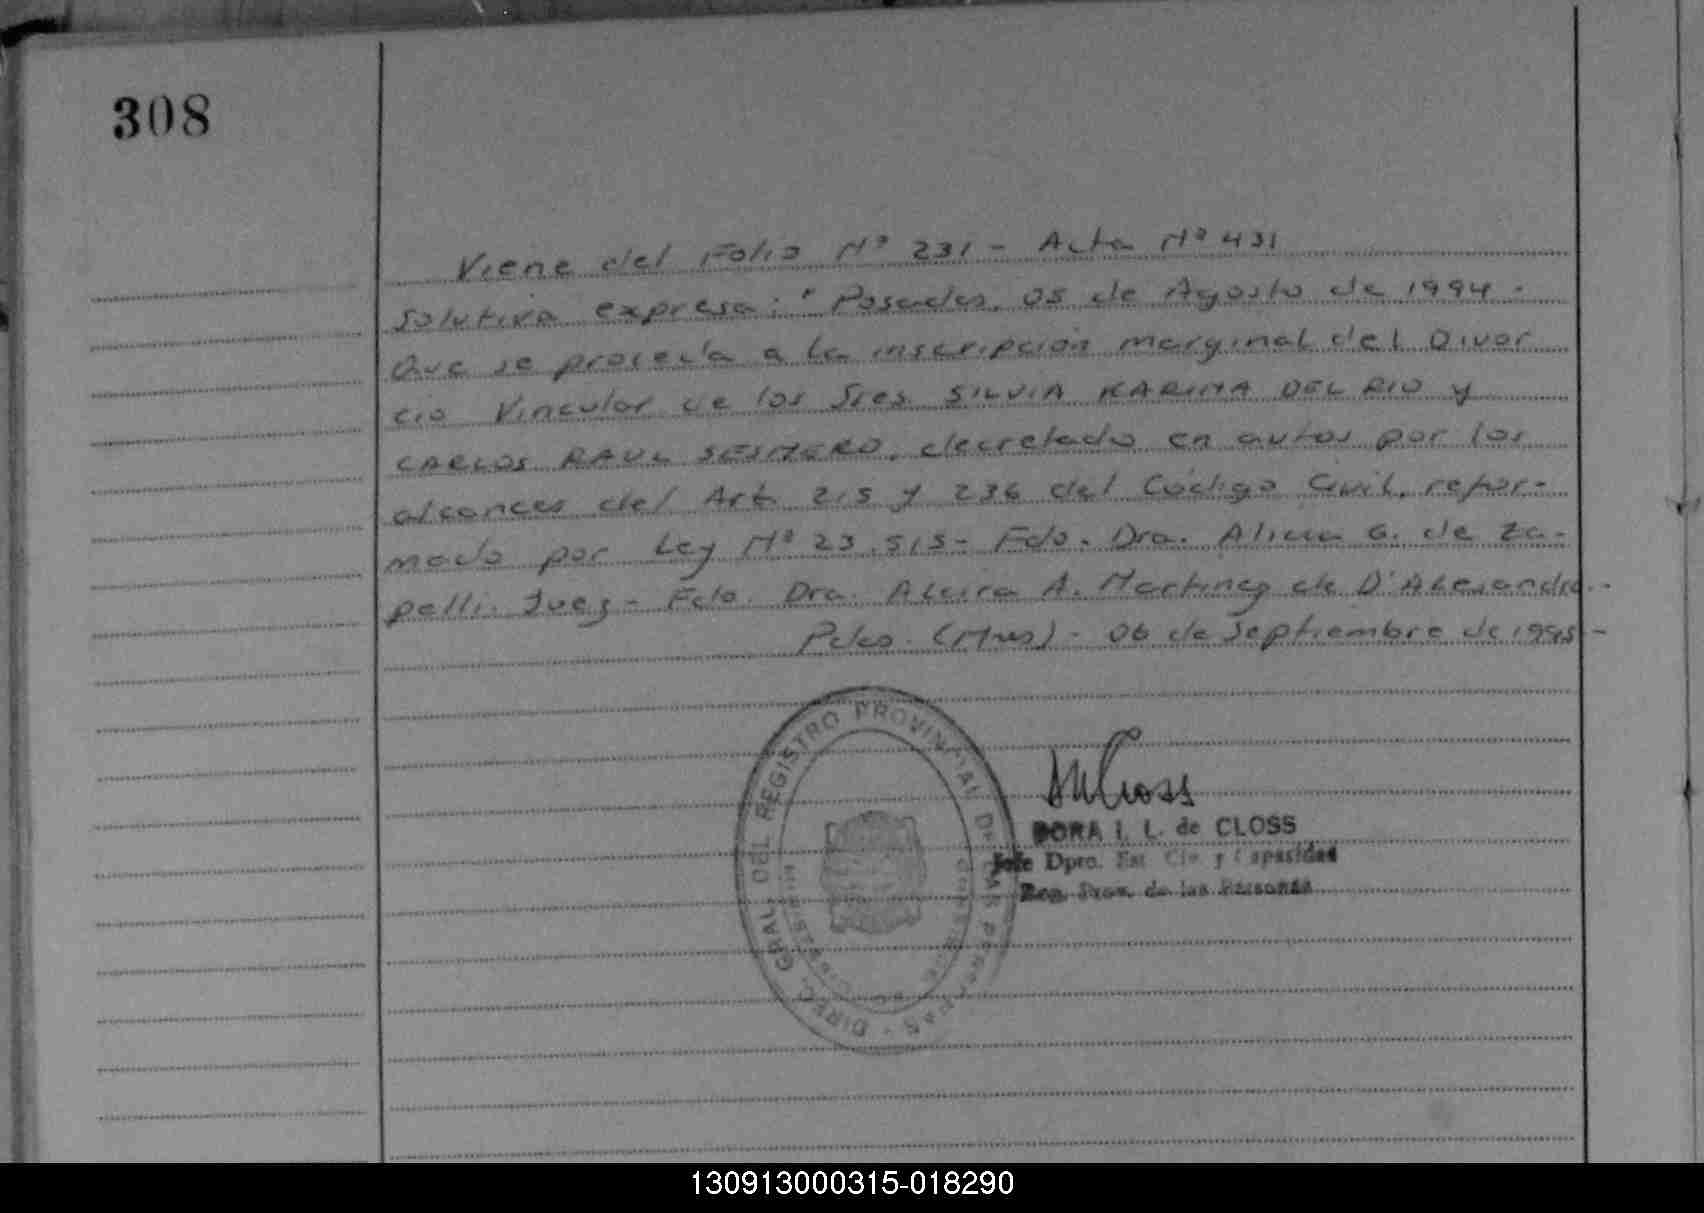 308
Viene del Folio Nº 231 - Acta Nº 431
solutiva expresa: "Posadas, 05 de Agosto de 1994.
Que se proceda a la inscripción marginal del Divor
cio Vincular de los Sres. SILVIA KARINA DEL RIO y
CARLOS RAUL SESMERO, decretado en autos por los
alcances del Art. 215 y 236 del Código Civil, refor-
mado por Ley Nº 23.515- Fdo. Dra. Alicia G. de Za-
pelli. Juez - Fdo. Dra. Alcira A. Martinez de D'Alesandro.-
Pdas. (Mnes) - 06 de Septiembre de 1995-
DIREC. GRAL. DEL REGISTRO PROVINCIAL DE LAS PERSONAS
MINISTERIO DE GOBIERNO
DORA I. L. de CLOSS
Jefe Dpto. Est. Civ. y Capacidad
Reg. Prov. de las Personas
130913000315-018290